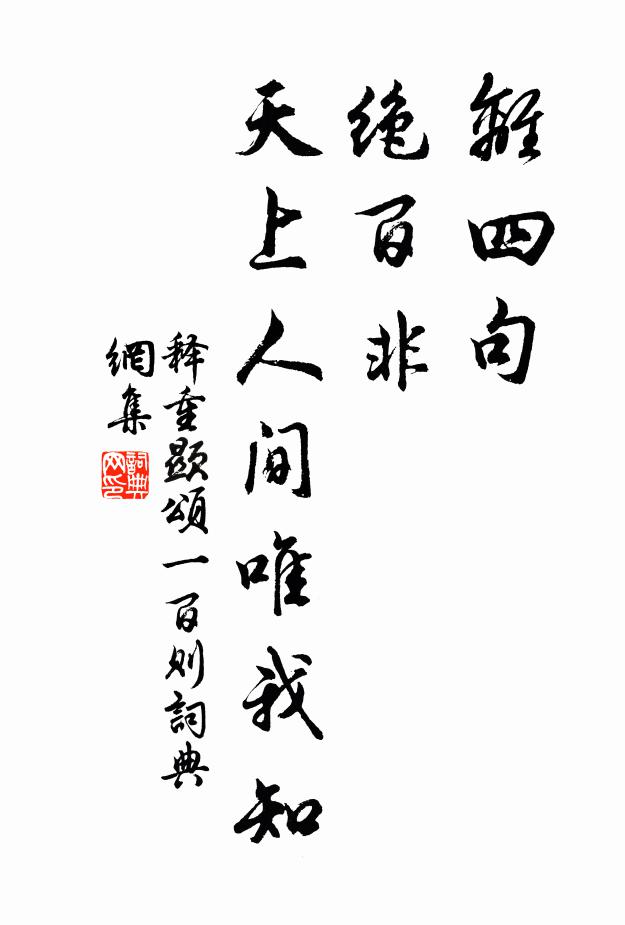 離四句
绝百非
天上人间唯我知
释重顯頌一百则詞典
網集
詞典
网印